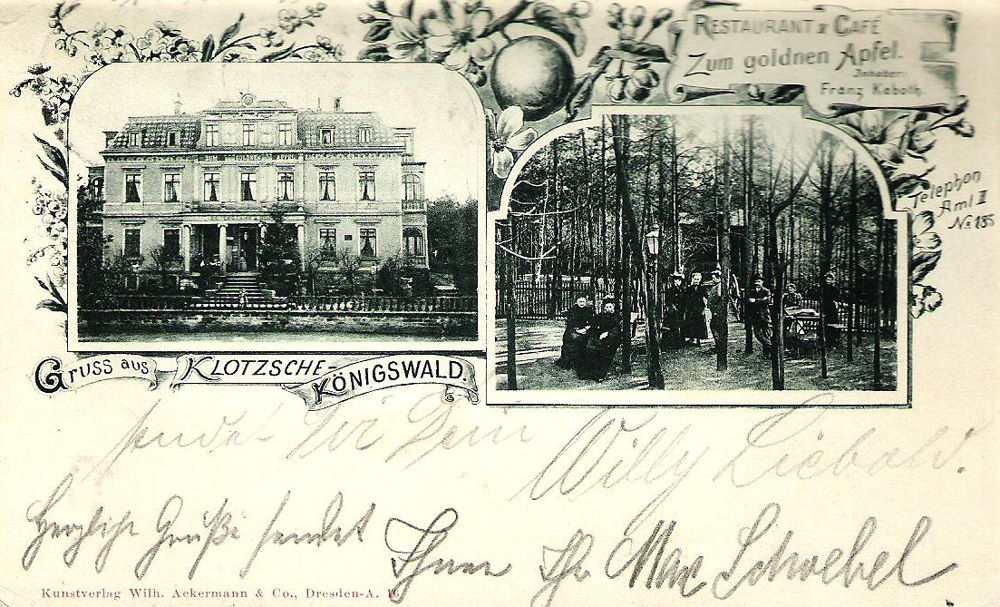 RESTAURANT & CAFÉ
Zum goldnen Apfel.
Inhaber:
Franz Kaboth.
Telephon
Amt II
No 185
GRUSS aus KLOTZSCHE-
KÖNIGSWALD.
sendet Dir Dein Willy Liebold.
Herzliche Grüße sendet Ihnen Ihr Max Schwebel
Kunstverlag Wilh. Ackermann & Co., Dresden-A. 16